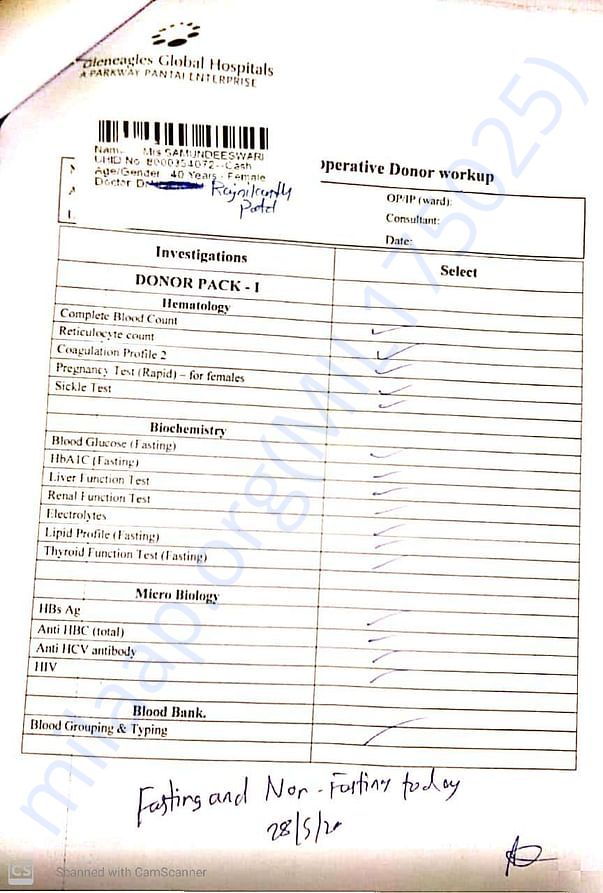 Gleneagles Global Hospitals
A PARKWAY PANTAI ENTERPRISE
Name Mrs SAMUNDEESWARI
UHID No 8000354072--Cash
Age/Gender 40 Years - Female
Doctor Dr
Rajnikanth
Patel
perative Donor workup
OP/IP (ward):
Consultant:
Date:
Investigations Select
DONOR PACK - I
Hematology
Complete Blood Count
Reticulocyte count
Coagulation Profile 2
Pregnancy Test (Rapid) – for females
Sickle Test
Biochemistry
Blood Glucose (Fasting)
HbA1C (Fasting)
Liver Function Test
Renal Function Test
Electrolytes
Lipid Profile (Fasting)
Thyroid Function Test (Fasting)
Micro Biology
HBs Ag
Anti HBC (total)
Anti HCV antibody
HIV
Blood Bank.
Blood Grouping & Typing
Fasting and Non-Fasting today
28/5/20
milaap.org(MIL175025)
CS Scanned with CamScanner